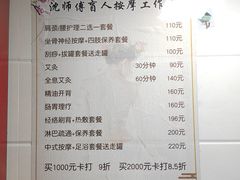 沈师傅盲人按摩工作
肩颈/腰护理二选一套餐 110元
坐骨神经按摩+四肢保养套餐 110元
刮痧+拔罐套餐送走罐 120元
艾灸 30分钟 90元
全息艾灸 60分钟 140元
精油开背 160元
肠胃理疗 160元
经络刷背+热敷套餐 196元
淋巴疏通+保养套餐 200元
中式按摩+足浴套餐送走罐 220元
买1000元卡打 9折 买2000元卡打8.5折